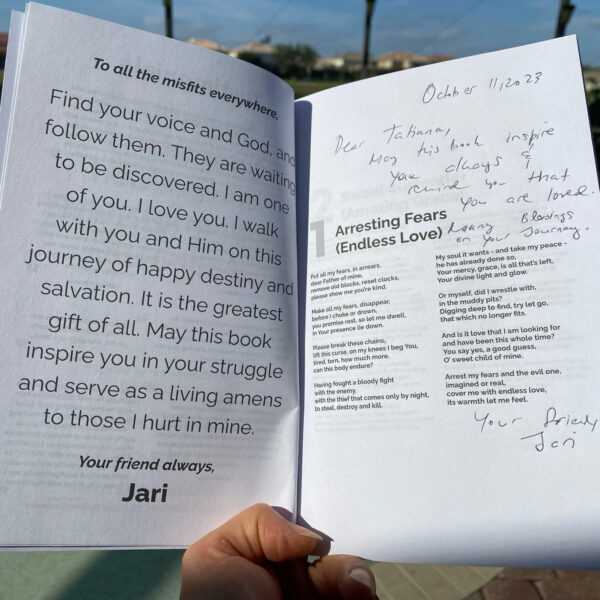 To all the misfits everywhere,
Find your voice and God, and
follow them. They are waiting
to be discovered. I am one
of you. I love you. I walk
with you and Him on this
journey of happy destiny and
salvation. It is the greatest
gift of all. May this book
inspire you in your struggle
and serve as a living amens
to those I hurt in mine.
Your friend always,
Jari
October 11, 2023
Dear Tatiana,
May this book inspire
you always &
remind you that
you are loved.
Many Blessings
on your journey.
1
Arresting Fears
(Endless Love)
Put all my fears, in arrears,
dear Father of mine,
remove old blocks, reset clocks,
please show me you're kind.
Make all my fears, disappear,
before I choke or drown,
you promise rest, so let me dwell,
in Your presence lie down.
Please break these chains,
lift this curse, on my knees I beg You,
tired, torn, how much more,
can this body endure?
Having fought a bloody fight
with the enemy,
with the thief that comes only by night,
to steal, destroy and kill.
My soul it wants - and take my peace -
he has already done so,
Your mercy, grace, is all that's left,
Your divine light and glow.
Or myself, did I wrestle with,
in the muddy pits?
Digging deep to find, try let go,
that which no longer fits.
And is it love that I am looking for
and have been this whole time?
You say yes, a good guess,
O' sweet child of mine.
Arrest my fears and the evil one,
imagined or real,
cover me with endless love,
its warmth let me feel.
Your friend,
Jari